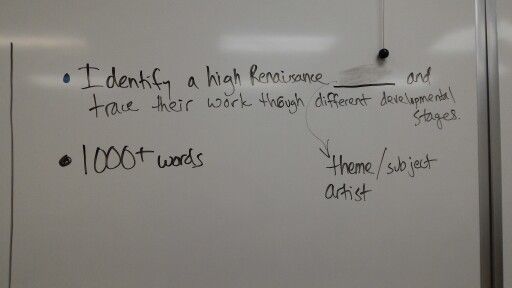 • Identify a high Renaissance ______ and
trace their work though different developmental
stages.
• 1000+ words
theme/subject
artist